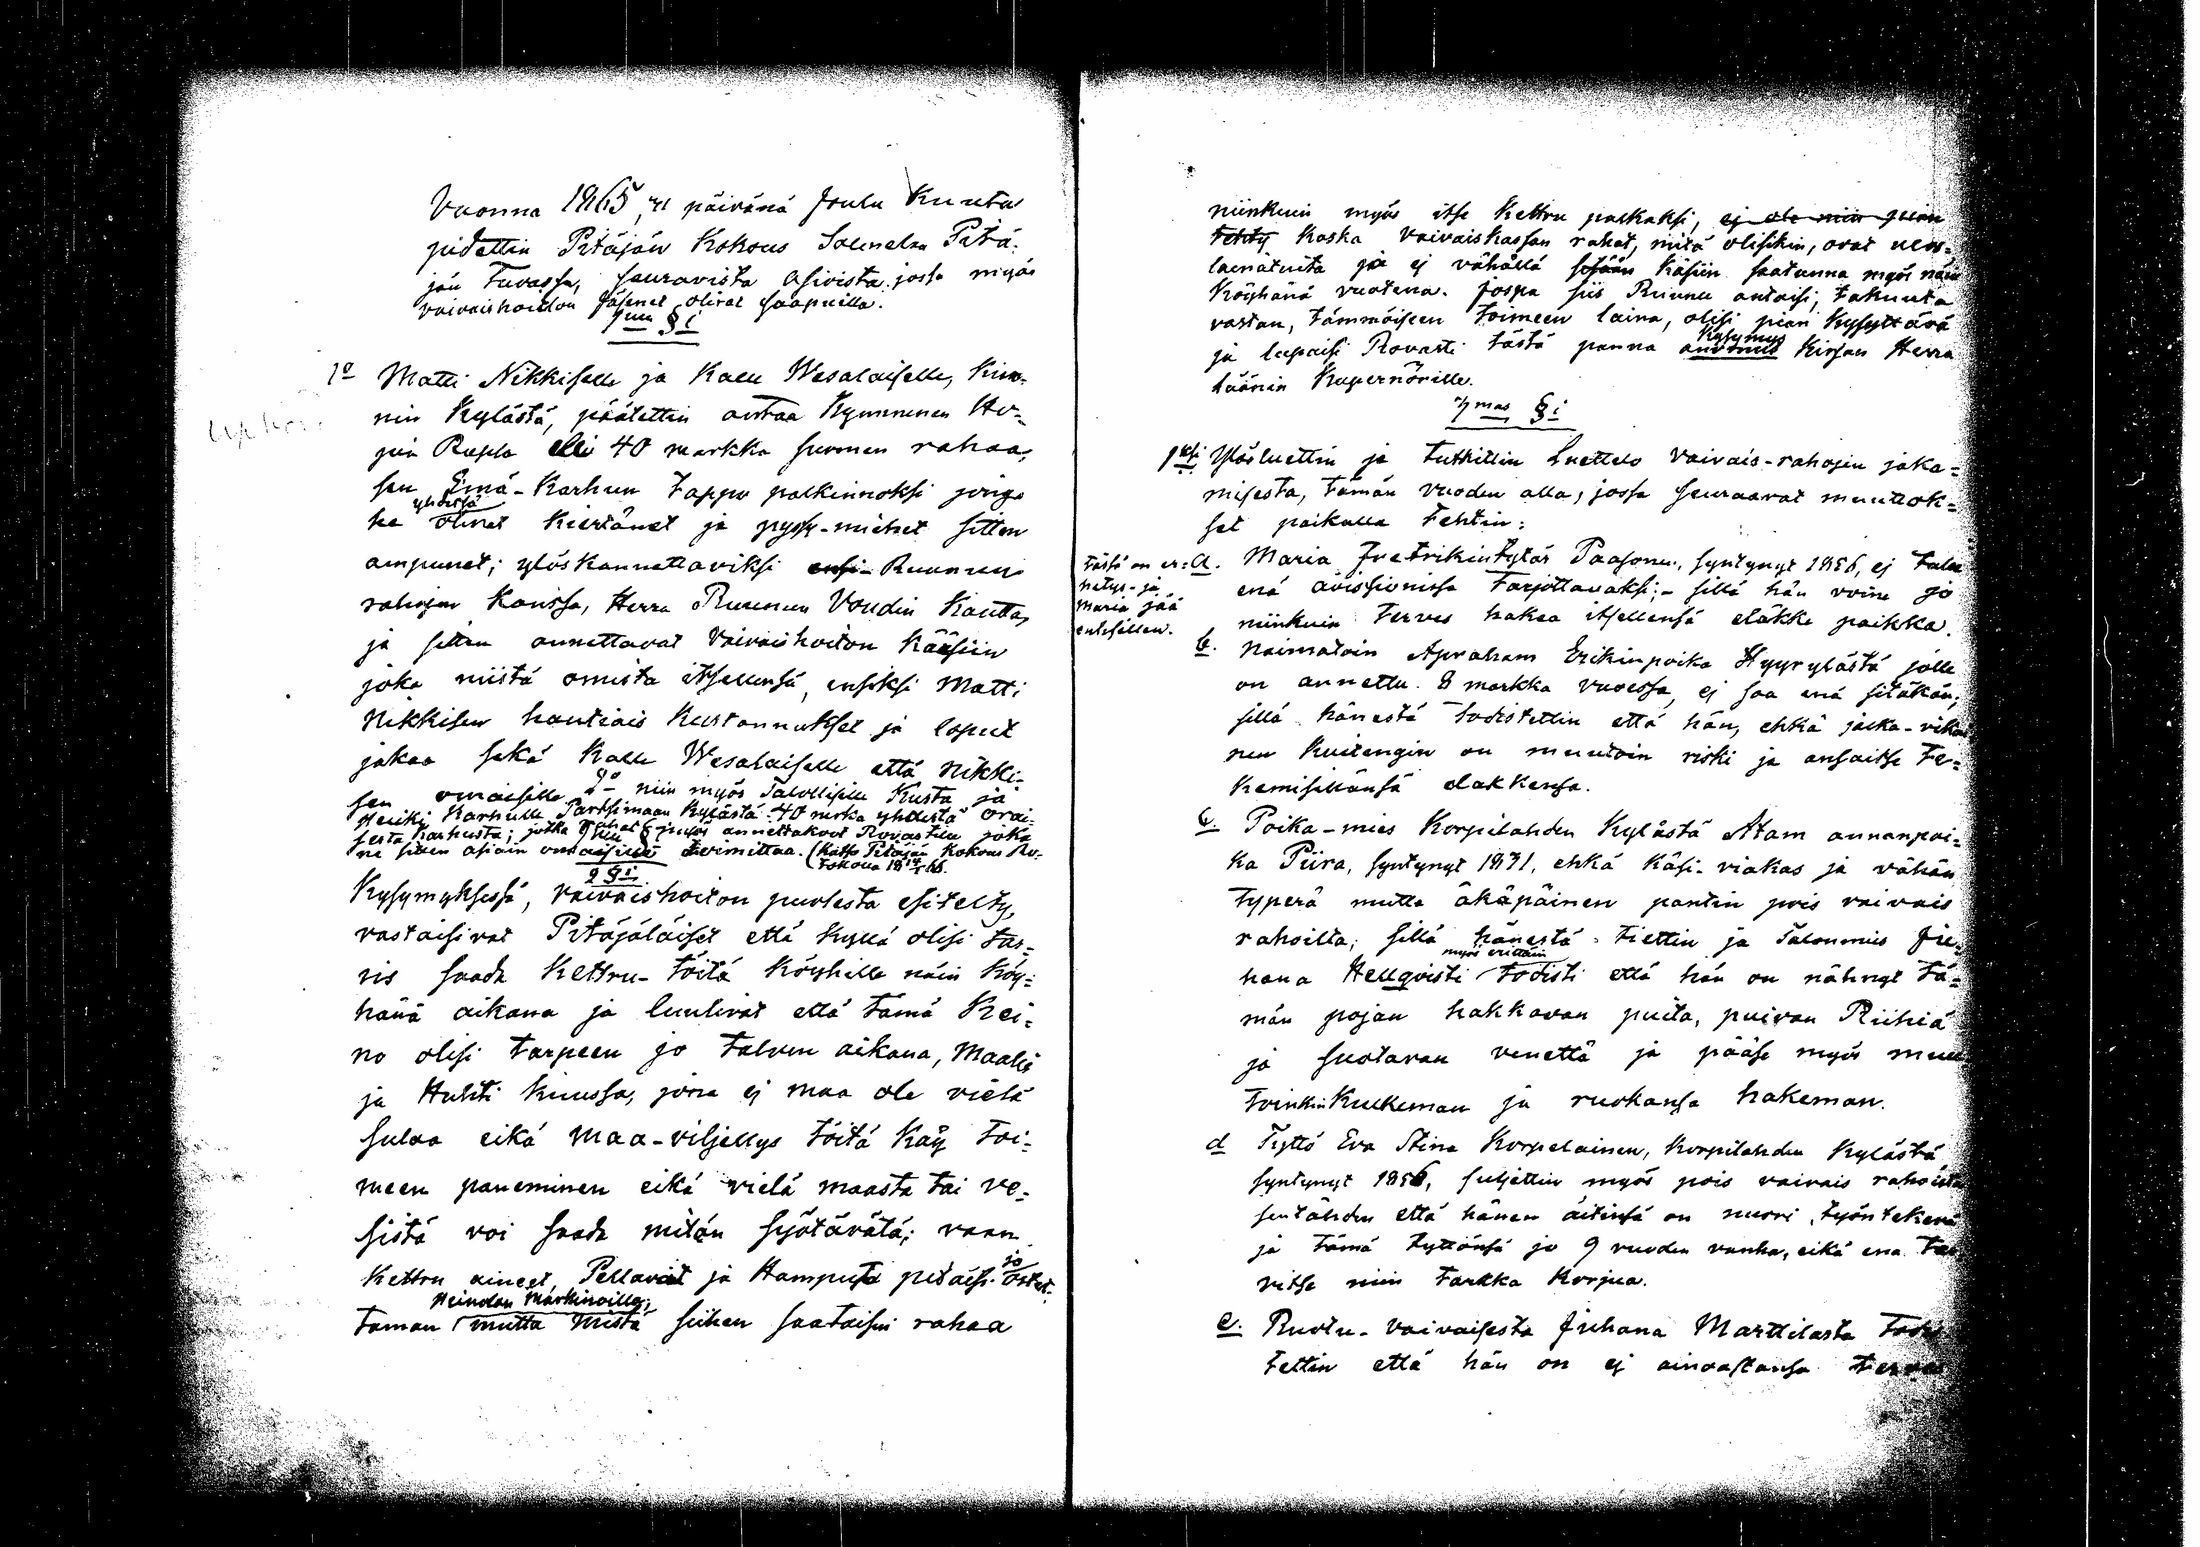 Vuonna 1865, 31 päivänä Joulu Kuuta
pidettin Pitäjän Kokous Solmelan Pitä-
jän Tuvassa, seuravista Asioista, jossa myös
vaivaishoiton Jäsenet olivat saapuilla.
1mä § i
1o Matti Nikkiselle ja Kalle Wesalaiselle,
nin Kylästä, päätettin antaa Kymmenen Ho-
pia Rupla eli 40 markka suomen rahaa,
sen Emä-Karhun tappo palkinnoksi jonga
yhdessä
he olivat kiertänet ja pyssy-miehet sitten
ampunet; ylöskannettaviksi ensi- Ruunun
rahojen kanssa, Herra Ruunun Voudin Kautta,
ja sitten annettavat Vaivaishoiton Kääsiin
joka niistä omista itsellensä, ensiksi Matti
Nikkisen hautiais kustannukset ja loput
jakaa sekä Kalle Wesalaiselle että Nikki-
sen omaisille 2o niin myös Talollisille Kusta ja
Heiki Karhulle Partsimaan Kylästä 40 merka yhdestä orai-
sesta Karhusta; jotka rahat myös annettakoot Rovastin joka
ne sitten asiain omaisille toimittaa. (Katso Pitäjän Kokous
2 § i
Kysymyksessä, vaivaishoiton puolesta esitelty,
vastaisivat Pitäjäläiset että kyllä olisi tar-
vis saada Kettru-töitä Köyhille näin köy-
hänä aikana ja luulivat että tämä Kei-
no olisi tarpeen jo talven aikana, Maalis
ja Huhti kuussa, jona ej maa ole vielä
sulaa eikä maa-viljellys töitä käy toi-
meen paneminen eikä vielä maasta tai ve-
sistä voi saada mitän syötävätä; vaan
jo
Kettru aineet, Pellavat ja Hamputa pitäisi ostet-
Heinolan Markinoilla;
taman mutta mistä siihen saataisin rahaa
niinkuin myös itse Kettru palkaksi, ej ole niin quin
tehty koska vaivaiskassan rahat, mitä olisikin, ovat ulos-
lainatuita ja ej vähällä käsiin saatanna myös näin
Köyhänä vuotena. Jospa siis Ruunu antaisi, takuuta
vastan, tämmöiseen toimeen laina, olisi pian kysyttävä
Kysymys
ja lupaisi Rovasti tästä panna anomus Kirjan Herra
läänin Kupernörille.
3mas § i
1ksi Ylösluettin ja tutkittin Luettelo vaivais-rahojen jaka-
misesta, tämän vuoden alla, jossa seuraavat muuttok-
set paikalla tehtin:
tässä on er-
netys- ja
Maria jää
entisellen.
a. Maria Fretrikintytär Paasonen, syntynyt 1856, ej tule
enä tarjottavaksi;- sillä hän voine jo
niinkuin terves hakea itsellensä eläkke paikka.
b. Naimatoin Apraham Erikinpoika Hyyrylästä jolle
on annettu 8 markka vuoessa, ej saa enä sitäkän;
sillä hänestä todistettin että hän, ehkä jalka-vikai
nen kuitengin on muutoin riski ja ansaitse te-
kemisellänsä elakkensa.
c. Poika-mies Korpilahden Kylästä Atam annanpoi-
ka Piira, syntynyt 1831, ehkä käsi-viakas ja vähän
typerä mutta äkäpäinen pantin pois vaivais
rahoilta, sillä hänestä tiettin ja Talonmies Ju-
myös erittäin
hana Hellqvisti todisti että hän on nähnyt tä-
män pojan hakkavan puita, puivan Riihiä
ja suotavan venettä ja pääse myös muu
toinkin kulkeman ja ruokansa hakeman.
d Tyttö Eva Stina Korpelainen, Korpilahden Kylästä
syntynyt 1856, suljettin myös pois vaivais rahoista
sentähden että hänen äitinsä on nuori, työntekevä
ja tämä tyttönsä jo 9 vuoden vanha, eikä enä tar-
vitse niin tarkka korjua.
e. Ruotu-vaivaisesta Juhana Marttilasta todis
tettin että hän on ej ainoastansa terves